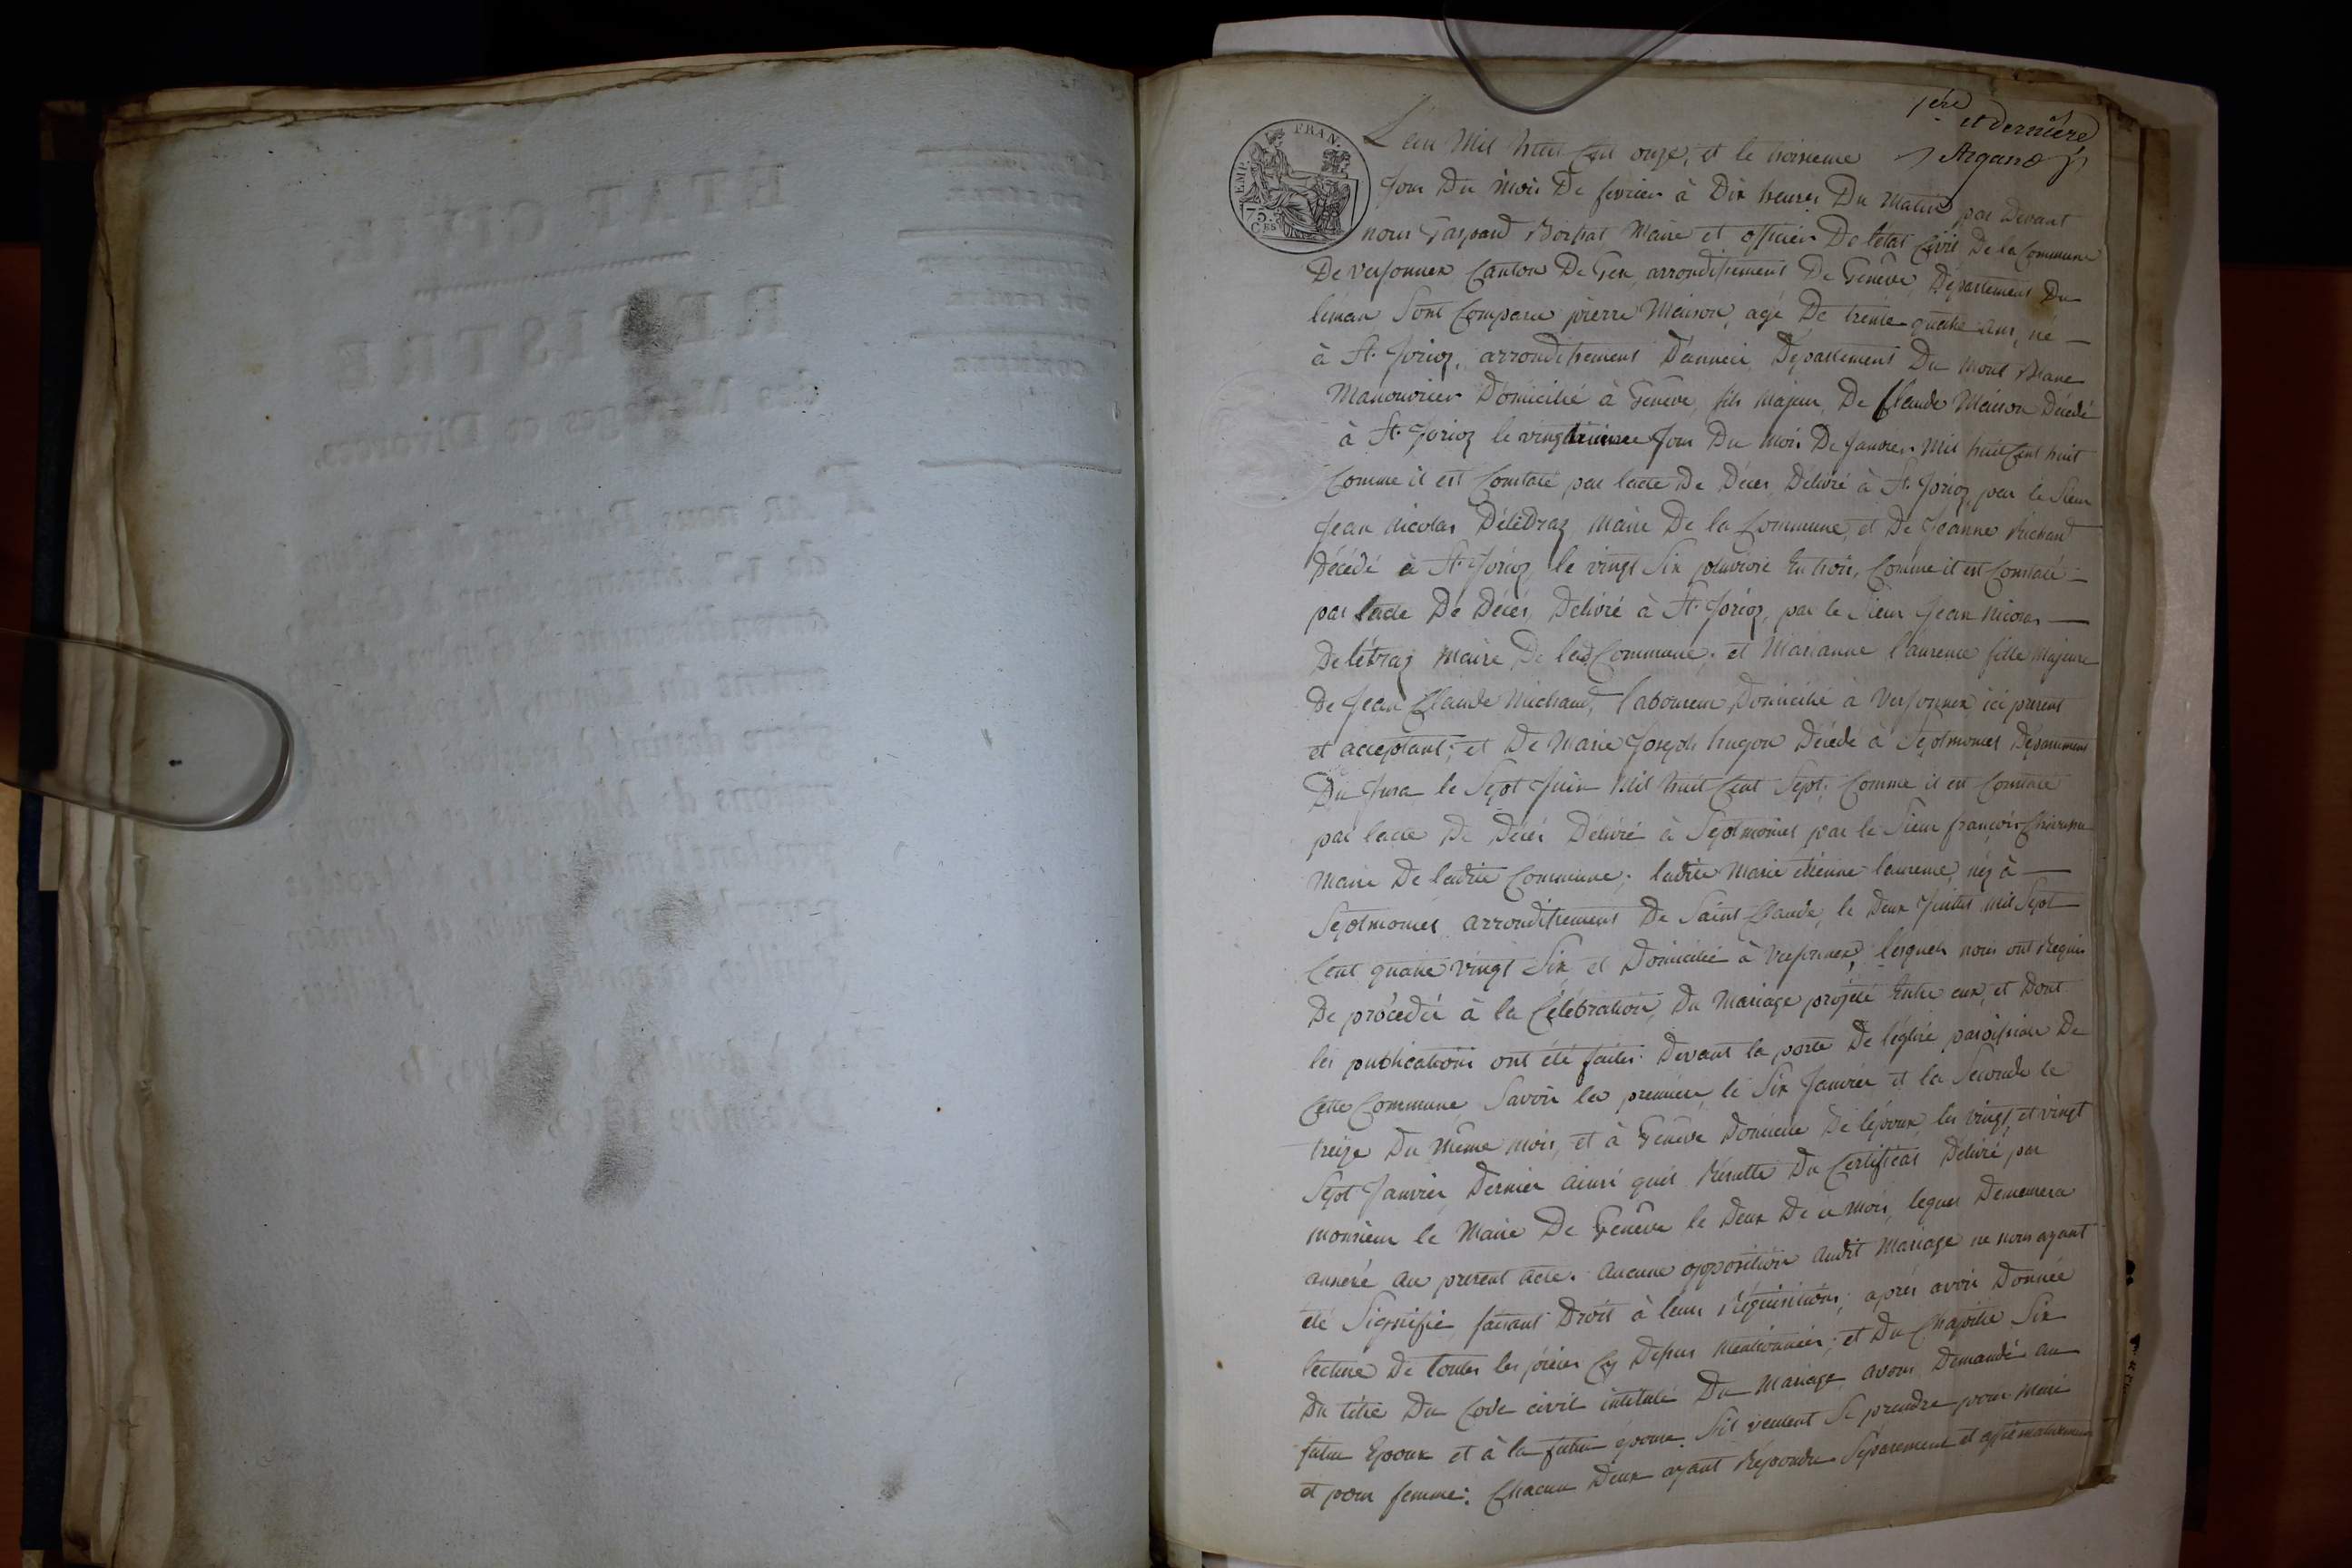 1ère
et dernière
Argand
EMP. FRAN.
75
CES
L'an Mil huit Cent onze, et le troisieme
Jour Du mois De fevrier à Dix heures Du Matin par Devant
nous Gaspard Maire et officier De letat Civil De la Commune
De Versonnex Canton De Gex, arrondissement De Genêve, Departement Du
leman Sont Comparu pierre Maison, agé De trente quatre ans, né
à St. Jorioz, arrondissement D'anneci, Departement Du Mont Blanc
Manouvrier Domicilié à Genêve, fils Majeur, De Claude Maison Décédé
à St. Jorioz le Jour Du mois De Janvier Mil huit Cent huit
Comme il est Constaté par lacte De Décès, Délivré à St. Jorioz, par le Sieur
Jean Nicolas Délétraz, Maire De la Commune, et De Jeanne Richard
Décédé à St. Jorioz, le vingt Six pluviose an trois, Comme il est Constaté
par lacte De Décès, Delivré à St. Jorioz, par le Sieur Jean Nicolas
Delétraz Maire De lad. Commune; et Marianne laurence fille Majeure
De Jean Claude Michaud, laboureur Domicilié à Versonnex ici present
et acceptant; et De Marie Joseph hugon Décédé à Septmoncel Departement
Du Jura le Sept Juin Mil huit Cent Sept, Comme il est Constaté
par lacte De Décès Délivré à Septmoncel par le Sieur françois
Maire De ladite Commune; ladite Marie étienne laurence, née à
Septmoncel arrondissement De Saint Claude, le Deux Juillet mil Sept
Cent quatre vingt Six, et Domicilié à Versonnex; lesquels nous ont Requis
De procéder à la Célébration Du Mariage projeté Entre eux, et Dont
les publications ont été faites Devant la porte De l'église paroissiale De
Cette Commune Savoir la premiere, le Six Janvier et la Seconde le
treize Du même mois, et à Genêve Domicile De l'époux les vingt et vingt
Sept Janvier Dernier ainsi quil Résulte Du Certificat Délivré par
monsieur le Maire De Genêve le Deux De ce mois, lequel Demeurera
annexé au present acte. Aucune opposition audit Mariage ne nous ayant
été Signifié, faisant Droit à leurs Réquisitions; après avoir Donnée
lecture De toutes les pièces Cy Dessus Mentionnées; et Du Chapitre Six
Du titre Du Code civil intitulé Du Mariage, avons Demandé au
futur Epoux et à la future épouse Sils veulent Se prendre pour Mari
et pour femme: Chacun Deux ayant Répondu Séparement et affirmativement